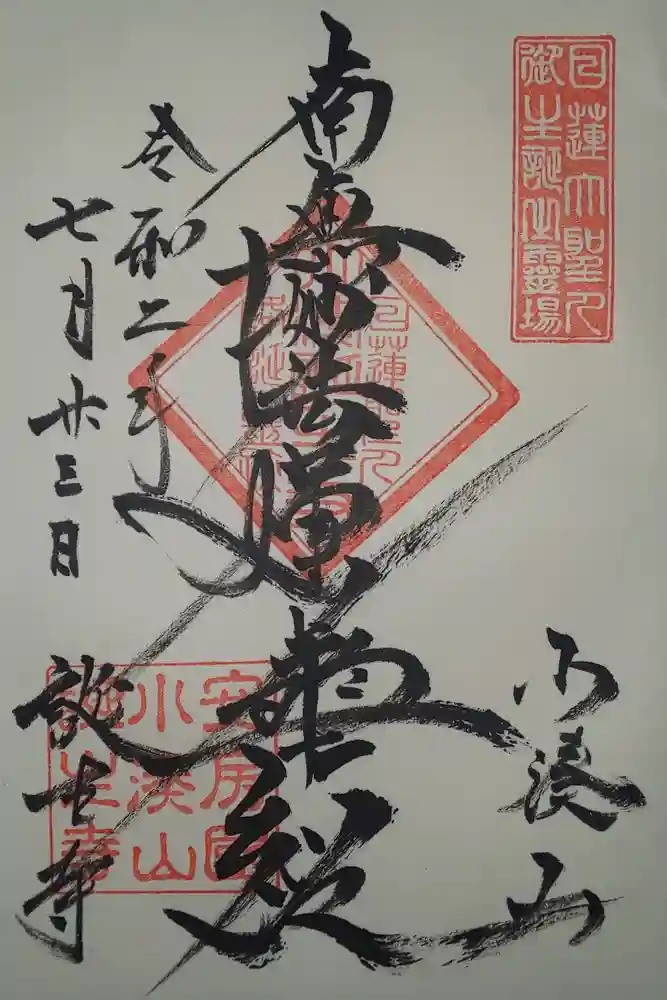 日蓮大聖人
御生誕之霊場
小湊山
南無妙法蓮華経
日蓮聖人
御誕生霊場
令和二年
七月廿三日
安房国
小湊山
誕生寺
誕生寺